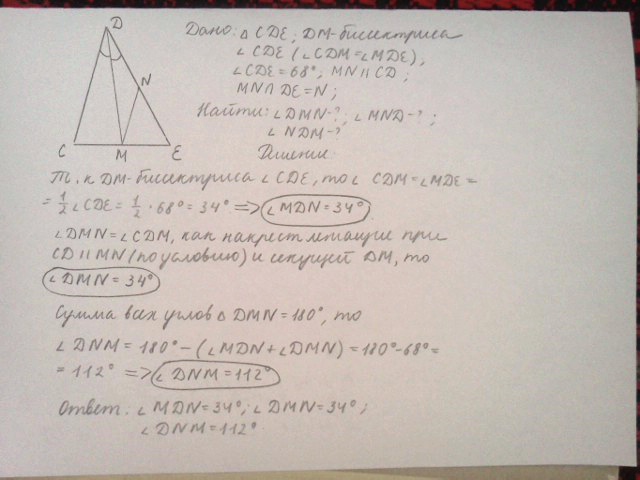 D
N
C M E
Дано: △ CDE; DM-биссектриса
∠ CDE (∠CDM=∠MDE),
∠CDE=68°, MN∥CD;
MN∩DE=N;
Найти: ∠DMN-?; ∠MND-?;
∠ NDM-?
Решение:
Т.к DM-биссектриса ∠ CDE, то ∠ CDM=∠MDE=
= 1/2 ∠CDE= 1/2 · 68°= 34° => ∠MDN=34°.
∠DMN=∠CDM, как накрест лежащие при
CD∥MN (по условию) и секущей DM, то
∠DMN= 34°
Сумма всех углов △ DMN=180°, то
∠ DNM= 180°-(∠MDN+∠DMN)=180°-68°=
= 112° => ∠ DNM=112°
Ответ: ∠ MDN=34°; ∠ DMN=34°;
∠ DNM=112°